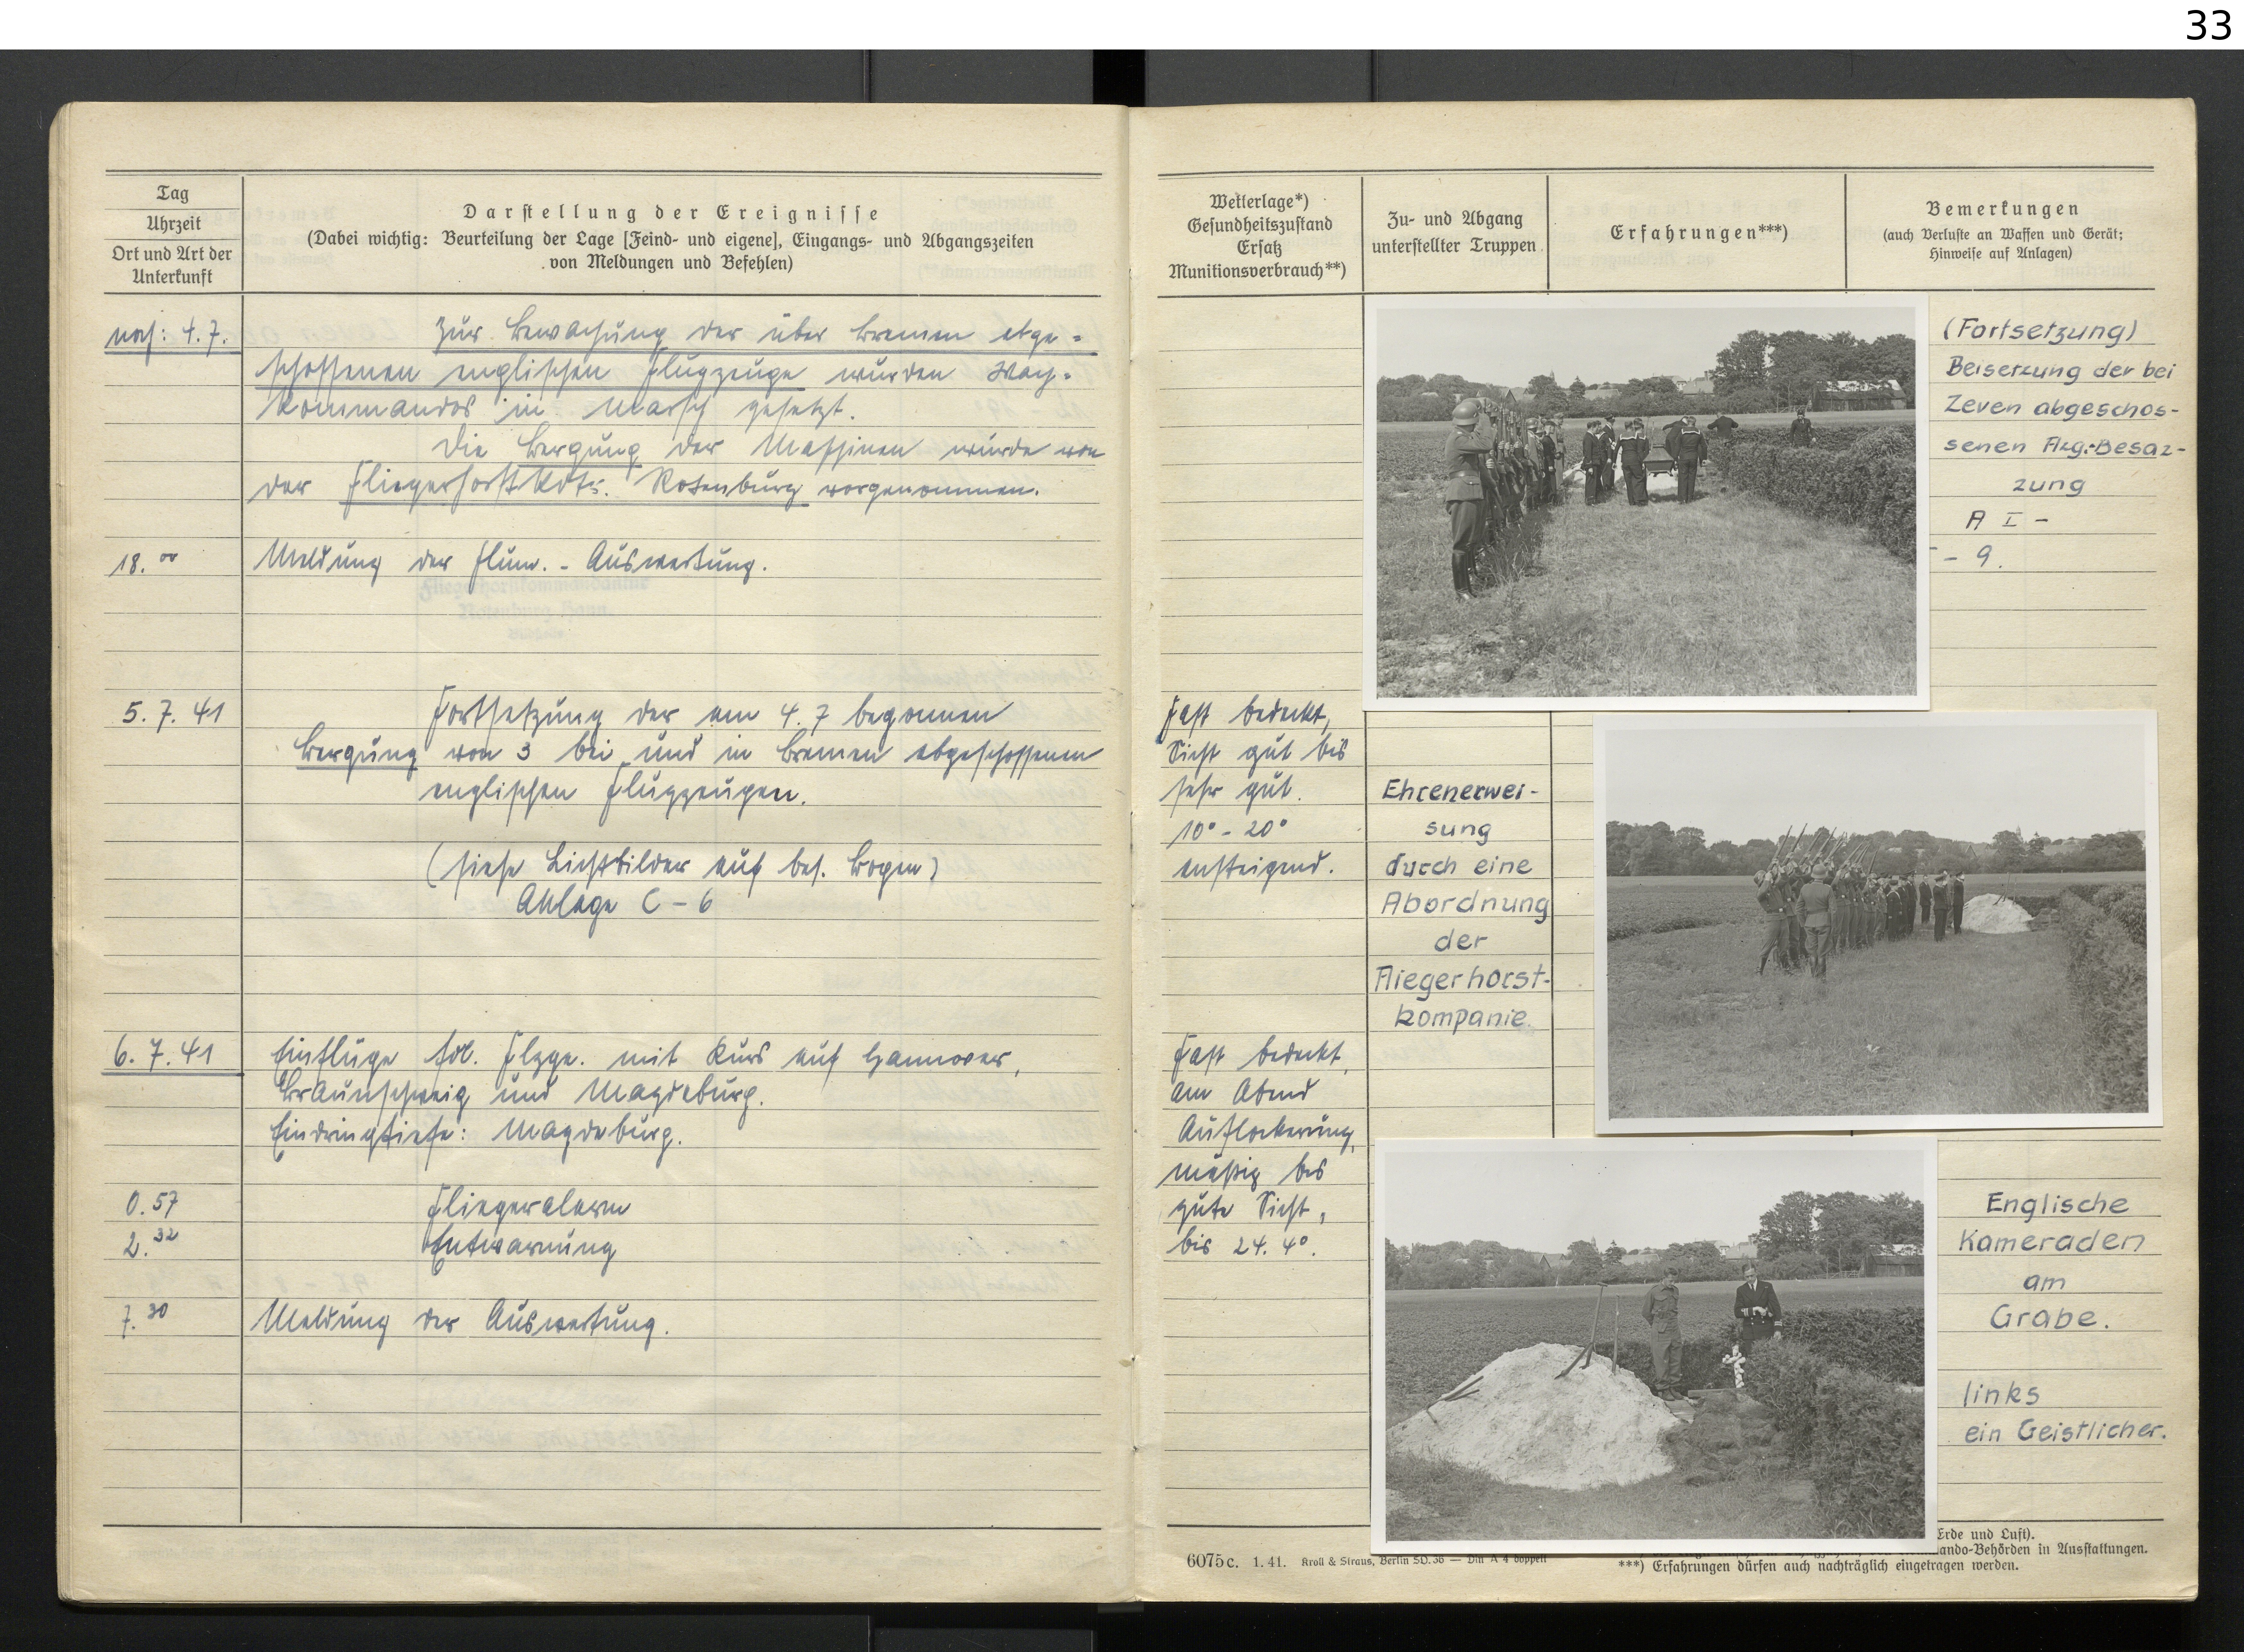 33
Tag
Uhrzeit
Ort und Art der
Unterkunft
Darstellung der Ereignisse
(Dabei wichtig: Beurteilung der Lage [Feind- und eigene], Eingangs- und Abgangszeiten
von Meldungen und Befehlen)
noch: 4.7.
Zur Bewachung der über Bremen abge-
schossenen englischen Flugzeuge wurden Wach-
kommandos in Marsch gesetzt.
Die Bergung der Maschinen wurde von
der Fliegerhorst Kdtr. Rotenburg vorgenommen.
18.00
Meldung der Flum.-Auswertung.
5.7.41
Fortsetzung der am 4.7 begonnen
Bergung von 3 bei und in Bremen abgeschossenen
englischen Flugzeugen.
(siehe Lichtbilder auf bes. Bogen)
Anlage C-6
6.7.41
Einflüge fdl. Flzge. mit Kurs auf Hannover,
Braunschweig und Magdeburg.
Eindringtiefe: Magdeburg.
0.57
Fliegeralarm
2.32
Entwarnung
7.30
Meldung der Auswertung.
Wetterlage*)
Gesundheitszustand
Ersatz
Munitionsverbrauch**)
Zu- und Abgang
unterstellter Truppen
Erfahrungen***)
Bemerkungen
(auch Verluste an Waffen und Gerät;
Hinweise auf Anlagen)
(Fortsetzung)
Beisetzung der bei
Zeven abgeschos-
senen Flzg.-Besaz-
zung
A I -
- 9.
Fast bedeckt,
Sicht gut bis
sehr gut.
10° - 20°
ansteigend.
Ehrenerwei-
sung
durch eine
Abordnung
der
Fliegerhorst-
kompanie.
Fast bedeckt,
am Abend
Auflockerung,
mäßig bis
gute Sicht,
bis 24.4°.
Englische
Kameraden
am
Grabe.
links
ein Geistlicher.
6075c. 1.41. Kroll & Straus, Berlin SO.36 — Din A 4 doppelt
Erde und Luft).
ando-Behörden in Ausstattungen.
***) Erfahrungen dürfen auch nachträglich eingetragen werden.